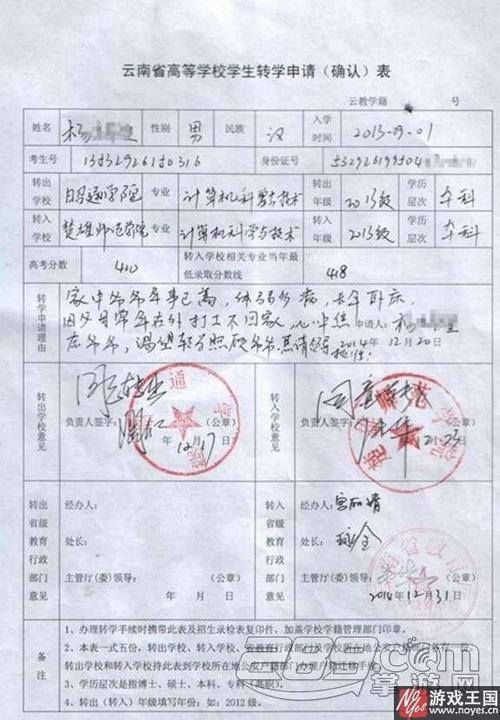 云南省高等学校学生转学申请（确认）表
云教学籍 号
姓名 杨 性别 男 民族 汉 入学时间 2013-09-01
考生号 身份证号
转出学校 昭通学院 专业 计算机科学与技术 转出年级 2013级 学历层次 本科
转入学校 楚雄师范学院 专业 计算机科学与技术 转入年级 2013级 学历层次 本科
高考分数 410 转入学校相关专业当年最低录取分数线 418
转学申请理由
家中爷爷年事已高，体弱多病，长年卧床
因父母常年在外打工不回家，心中焦 申请人：杨
虑爷爷，渴望转学照顾爷爷。
2014年12月20日
转出学校意见
同意转出
负责人签字： （公章）
年 12月17日
转入学校意见
同意
负责人签字： （公章）
转出省级教育行政部门意见
经办人：
处长：
主管厅(委)领导： （公章）
年 月 日
转入省级教育行政部门意见
经办人：
处长：
主管厅(委)领导： （公章）
2014年12月31日
备注
1、办理转学手续时携带此表及招生录检表复印件，加盖学校学籍管理部门印章。
2、本表一式五份，转出学校、转入学校、
转出学校和转入学校持此表到学校所在地公安户籍部门办理户籍迁移手续。
3、学历层次是指博士、硕士、本科、专科（高职）。
4、转出（转入）年级填写年份：如：2012级。
掌游网
游戏王国
www.noyes.cn